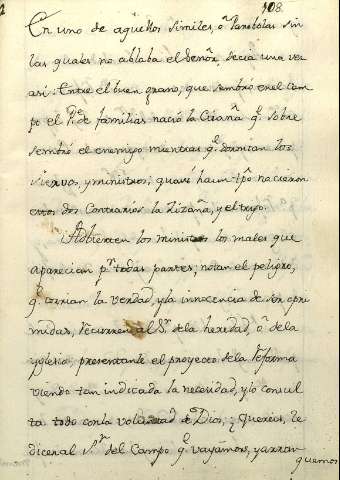 108.
En uno de aquellos Similes, ô Parabolas sin
las quales no ablaba el Señor, decia una vez
asi: Entre el buen grano, que sembrò en el cam-
po el Pe. de familias naciò la Cizaña qe. sobre
sembrò el enemigo mientras qe. dormian los
siervos, y ministros; quasi haun tpõ nacieron
estos dos Contrarios la Zizaña, y el trigo.
Adbierten los ministros los males que
aparecian pr. todas partes; notan el peligro,
qe. corrian la Verdad, y la innocencia de ser opri-
midas, recurren al Sr. de la heredad, ô de la
yglesia, presentanle el proyecto de la reforma
viendo tan indicada la necesidad, y lo consul-
ta todo con la voluntad de Dios, ¿ Quereis, le
dicen al Sr. del Campo qe. vayamos, y arran-
quemos